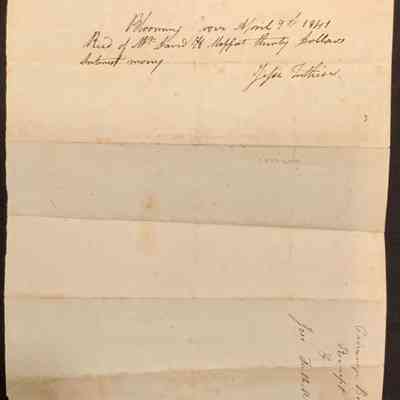 Blooming rove April 9th 1841
Recd of Mr David H Moffat thirty Dollars
Interest money
Jesse Tuthill
Receipt
Jess Tuthill